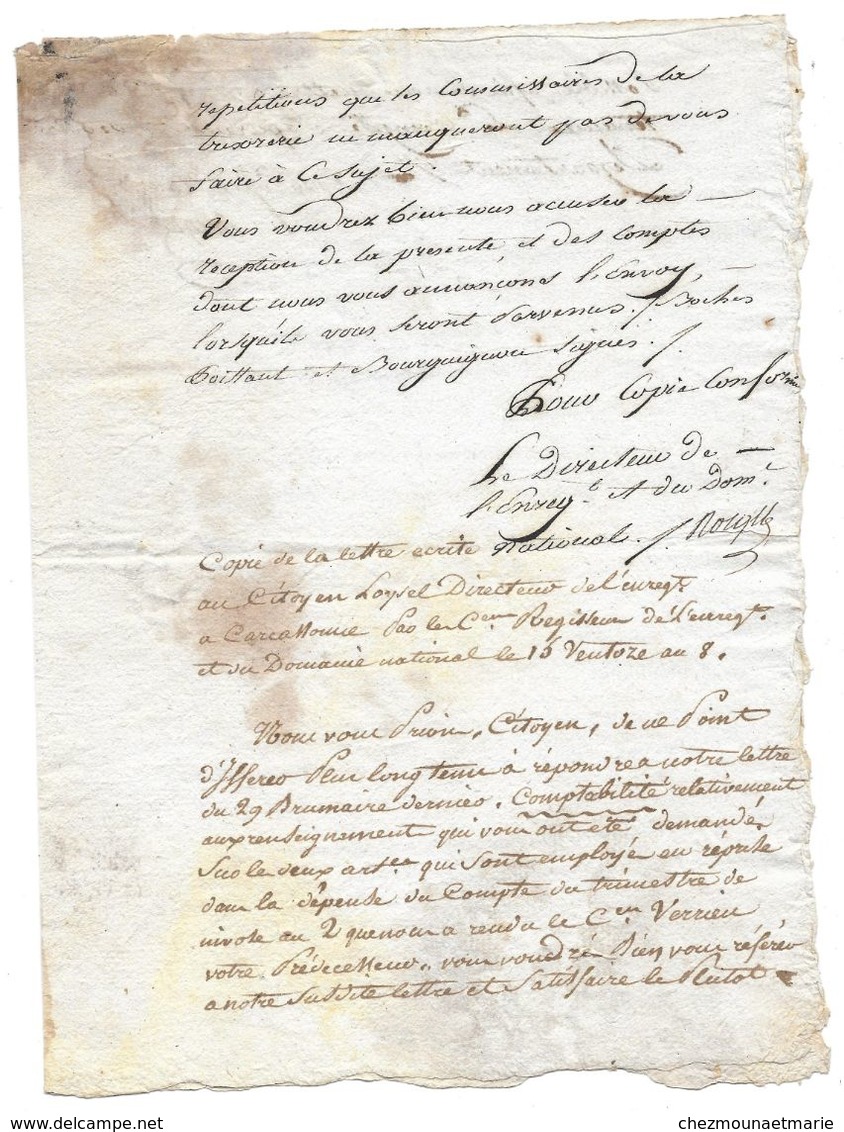 repetitions que les Commissaires de la
trezorerie ne manqueront pas de vous
faire à ce sujet.
Vous voudrez bien nous accuser la
reception de la presente et des comptes
dont nous vous annonçons l'envoy,
lorsquils vous seront parvenus. / Bochet
Poissant et Bourguignon signés. /
Pour Copie Conforme
Le Directeur de
l'Enreg.t et du Dom.e
national. /
Copie de la lettre ecrite
au Citoyen Loysel Directeur de l'enregt
a Carcassonne Par les Cen Regisseur de l'enregt.
et du Domaine national le 15 Ventoze an 8.
Nous vous Prions, Citoyen, de ne Point
différer Plus longtems à répondre a notre lettre
du 29 Brumaire dernier. Comptabilité relativement
aux renseignement qui vous ont été demandé
Sur le deux art.en qui sont employé en réprise
dans la dépense du Compte du trimestre de
nivose an 2 que nous a rendu le Cen Verrieu
votre Prédecesseur, vous voudré Bien vous référer
a notre Susdite lettre et Satisfaire le Plutot
chezmounaetmarie